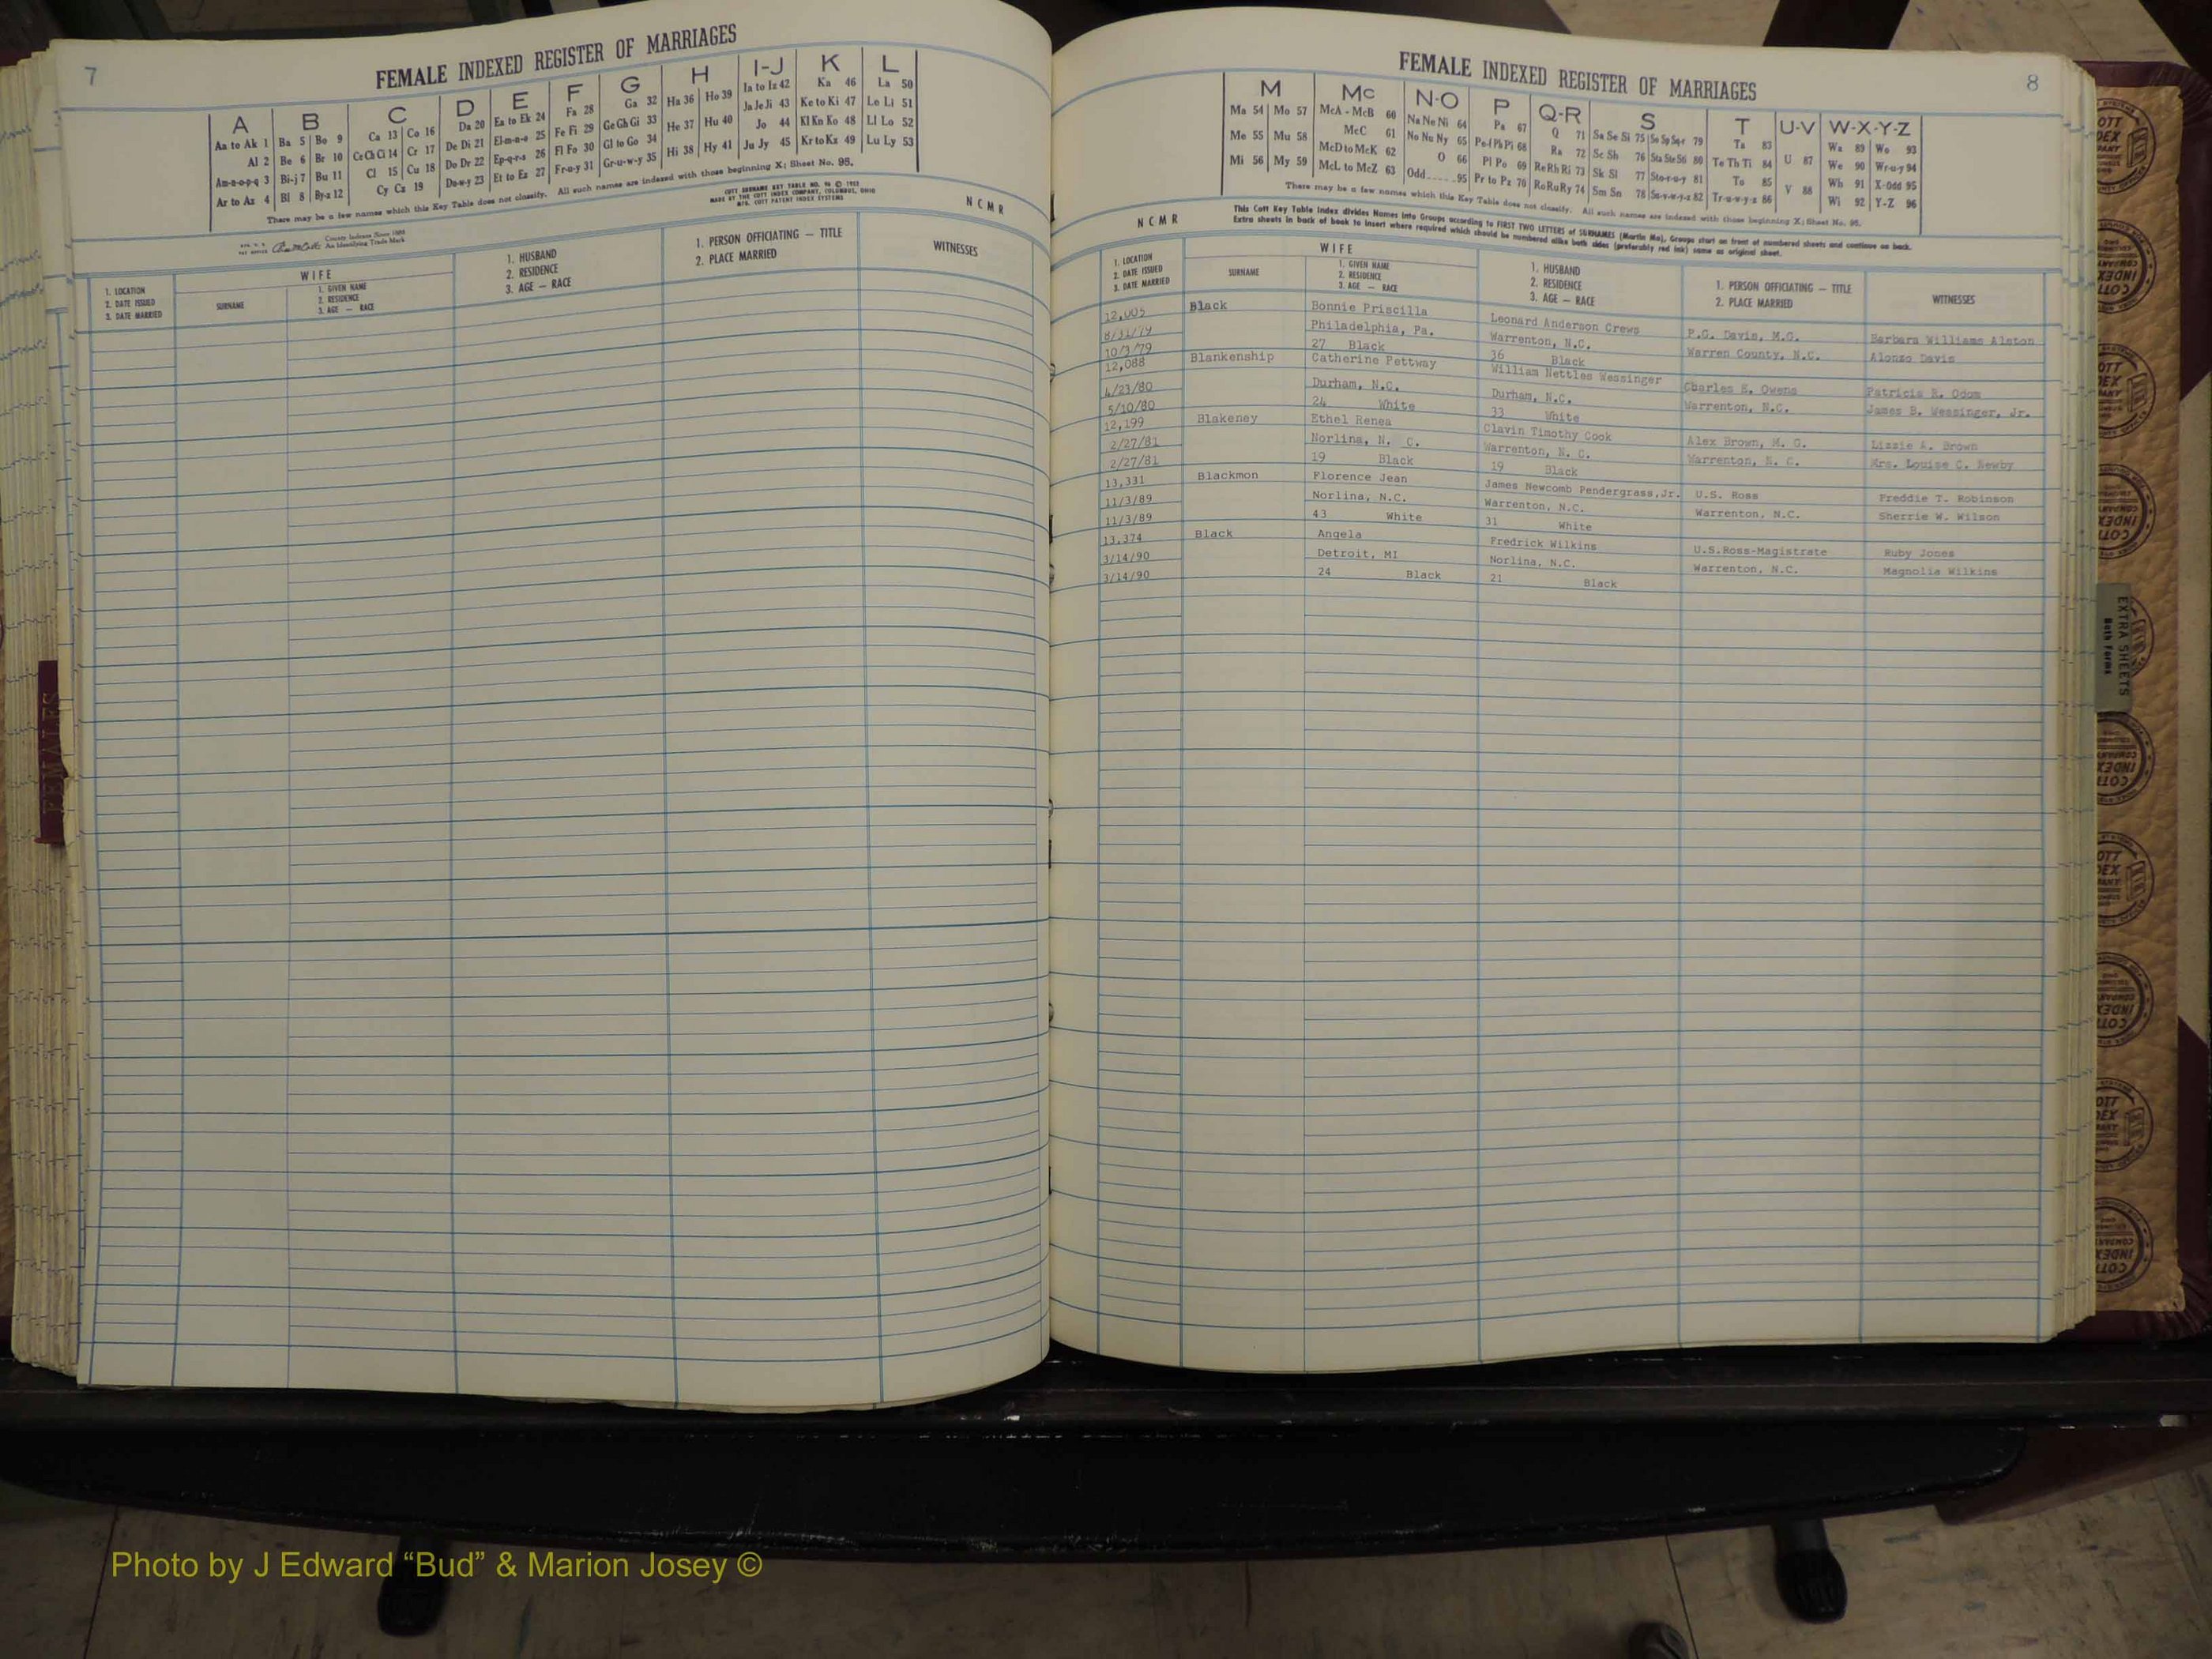 7
FEMALE INDEXED REGISTER OF MARRIAGES
A B C D E F G H I-J K L
Aa to Ak 1 Ba 5 Bo 9 Ca 13 Co 16 Da 20 Ea to Ek 24 Fa 28 Ga 32 Ha 36 Ho 39 Ia to Iz 42 Ka 46 La 50
Al 2 Be 6 Br 10 Ce Ch Ci 14 Cr 17 De Di 21 El-m-n-o 25 Fe Fi 29 Ge Gh Gi 33 He 37 Hu 40 Ja Je Ji 43 Ke to Ki 47 Le Li 51
Am-n-o-p-q 3 Bi-j 7 Bu 11 Cl 15 Cu 18 Do Dr 22 Ep-q-r-s 26 Fl Fo 30 Gl to Go 34 Hi 38 Hy 41 Jo 44 Kl Kn Ko 48 Ll Lo 52
Ar to Az 4 Bl 8 By-z 12 Cy Cz 19 Du-w-y 23 Et to Ez 27 Fr-u-y 31 Gr-u-w-y 35 Ju Jy 45 Kr to Kz 49 Lu Ly 53
There may be a few names which this Key Table does not classify. All such names are indexed with those beginning X; Sheet No. 95.
COTT SURNAME KEY TABLE NO. 96 © 1952
MADE BY THE COTT INDEX COMPANY, COLUMBUS, OHIO
MFG. COTT PATENT INDEX SYSTEMS
N C M R
County Indexes Since 1888
An Identifying Trade Mark
1. LOCATION
2. DATE ISSUED
3. DATE MARRIED
WIFE
SURNAME
1. GIVEN NAME
2. RESIDENCE
3. AGE — RACE
1. HUSBAND
2. RESIDENCE
3. AGE — RACE
1. PERSON OFFICIATING — TITLE
2. PLACE MARRIED
WITNESSES
FEMALES
8
FEMALE INDEXED REGISTER OF MARRIAGES
M Mc N-O P Q-R S T U-V W-X-Y-Z
Ma 54 Mo 57 McA - McB 60 Na Ne Ni 64 Pa 67 Q 71 Sa Se Si 75 So Sp Sq-r 79 Ta 83 U 87 Wa 89 Wo 93
Me 55 Mu 58 McC 61 No Nu Ny 65 Pe-f Ph Pi 68 Ra 72 Sc Sh 76 Sta Ste Sti 80 Te Th Ti 84 V 88 We 90 Wr-u-y 94
Mi 56 My 59 McD to McK 62 O 66 Pl Po 69 Re Rh Ri 73 Sk Sl 77 Sto-r-u-y 81 To 85 Wh 91 X-Odd 95
McL to McZ 63 Odd.....95 Pr to Pz 70 Ro Ru Ry 74 Sm Sn 78 Su-v-w-y-z 82 Tr-u-w-y-z 86 Wi 92 Y-Z 96
There may be a few names which this Key Table does not classify. All such names are indexed with those beginning X; Sheet No. 95.
N C M R
This Cott Key Table Index divides Names into Groups according to FIRST TWO LETTERS of SURNAMES (Martin Ma), Groups start on front of numbered sheets and continue on back.
Extra sheets in back of book to insert where required which should be numbered alike both sides (preferably red ink) same as original sheet.
1. LOCATION
2. DATE ISSUED
3. DATE MARRIED
WIFE
SURNAME
1. GIVEN NAME
2. RESIDENCE
3. AGE — RACE
1. HUSBAND
2. RESIDENCE
3. AGE — RACE
1. PERSON OFFICIATING — TITLE
2. PLACE MARRIED
WITNESSES
12,005 Black Bonnie Priscilla Leonard Anderson Crews P.G. Davis, M.G. Barbara Williams Alston
8/31/79 Philadelphia, Pa. Warrenton, N.C. Warren County, N.C. Alonzo Davis
10/3/79 27 Black 36 Black
12,088 Blankenship Catherine Pettway William Nettles Wessinger Charles E. Owens Patricia R. Odom
4/23/80 Durham, N.C. Durham, N.C. Warrenton, N.C. James B. Wessinger, Jr.
5/10/80 24 White 33 White
12,199 Blakeney Ethel Renea Clavin Timothy Cook Alex Brown, M. G. Lizzie A. Brown
2/27/81 Norlina, N. C. Warrenton, N. C. Warrenton, N. C. Mrs. Louise C. Newby
2/27/81 19 Black 19 Black
13,331 Blackmon Florence Jean James Newcomb Pendergrass,Jr. U.S. Ross Freddie T. Robinson
11/3/89 Norlina, N.C. Warrenton, N.C. Warrenton, N.C. Sherrie W. Wilson
11/3/89 43 White 31 White
13,374 Black Angela Fredrick Wilkins U.S.Ross-Magistrate Ruby Jones
3/14/90 Detroit, MI Norlina, N.C. Warrenton, N.C. Magnolia Wilkins
3/14/90 24 Black 21 Black
EXTRA SHEETS
Both Forms
Photo by J Edward “Bud” & Marion Josey ©